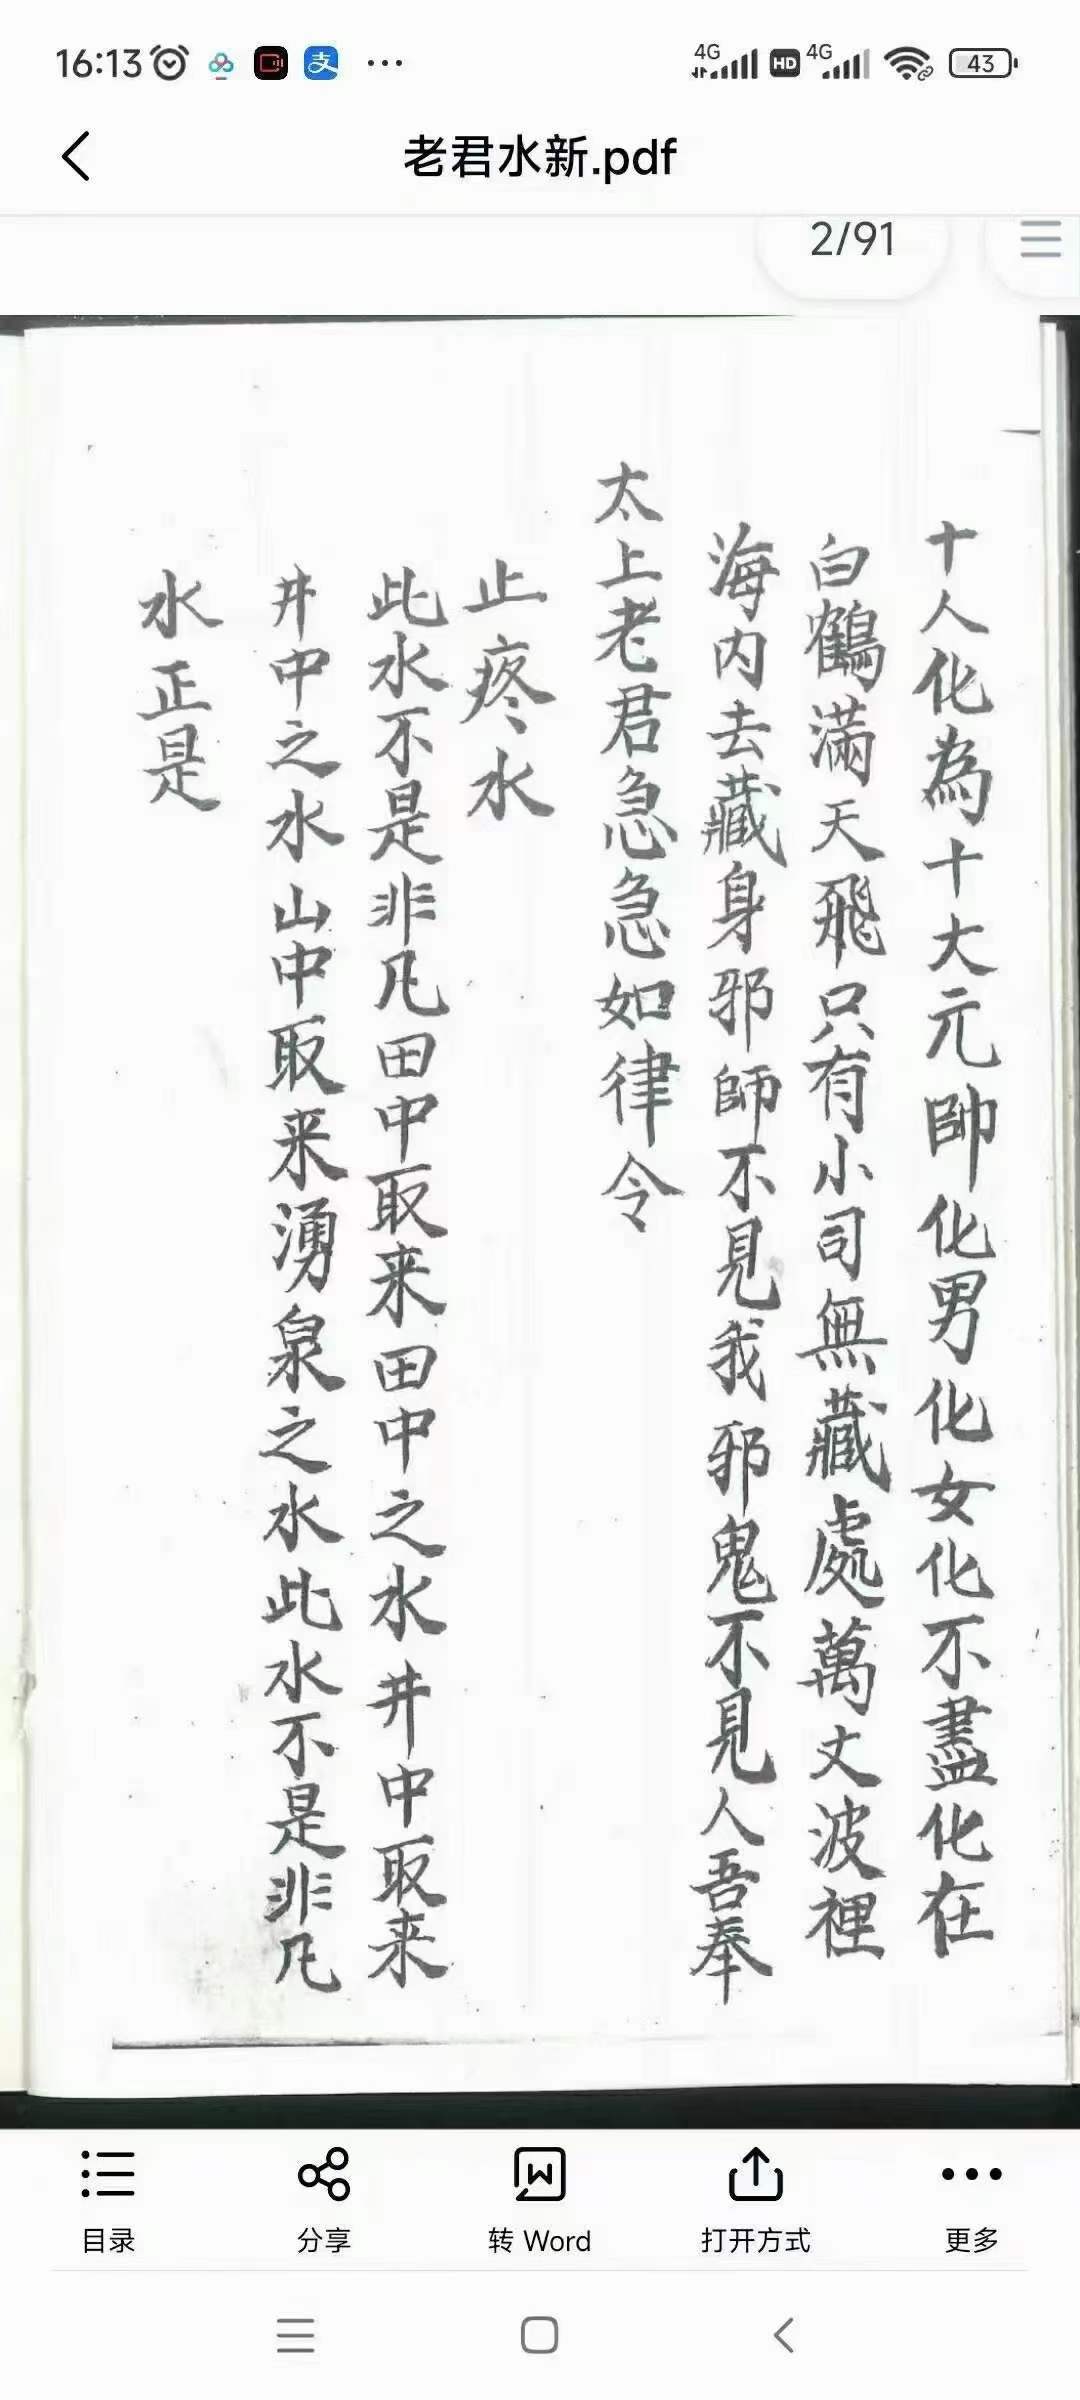 16:13
4G HD 4G 43
老君水新.pdf
2/91
十人化為十大元帥化男化女化不盡化在
白鶴滿天飛只有小司無藏處萬丈波裡
海内去藏身邪師不見我邪鬼不見人吾奉
太上老君急急如律令
止疼水
此水不是非凡田中取来田中之水井中取来
井中之水山中取来湧泉之水此水不是非凡
水正是
目录
分享
转 Word
打开方式
更多